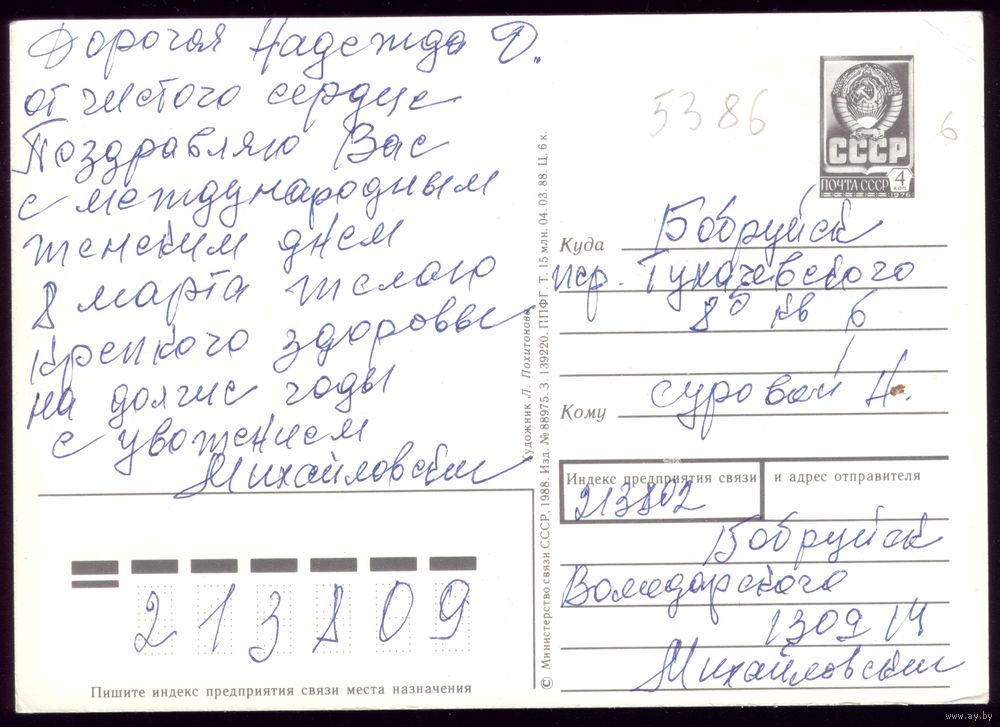 Дорогая Надежда Д.
от чистого сердце
Поздравляю Вас
с международным
женским днем
8 марта желаю
крепкого здоровье
на долгие годы
с уважением
Михайловский
213809
Пишите индекс предприятия связи места назначения
© Министерство связи СССР, 1988. Изд. № 88975. З. 139220. ППФГ. Т. 15 млн. 04. 03. 88. Ц. 6 к.
Художник Л. Похитонова
5386
6
СССР
ПОЧТА СССР 4 КОП
1976
Куда Бобруйск
пер. Тухачевского
8б кв 6
Кому Суровой Н.
Индекс предприятия связи и адрес отправителя
213802
Бобруйск
Володарского
Михайловский
www.ay.by